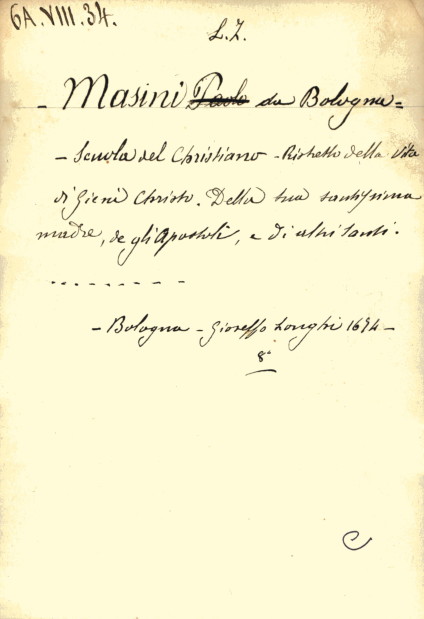 6A.VIII.34.
L.Z.
- Masini Paolo da Bologna =
- Scuola del Christiano - Ristretto della Vita
di Giesù Christo. Della sua santissima
madre, de gli Apostoli, e di altri santi.
- - - - - - - - -
- Bologna - Gioseffo Longhi 1694 -
8°
C